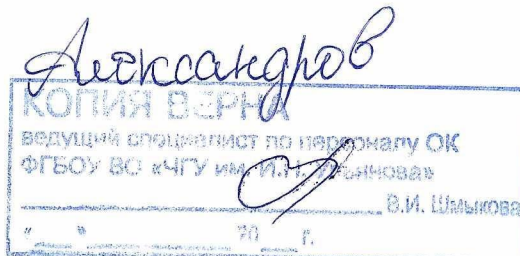 Александров
КОПИЯ ВЕРНА
ведущий специалист по персоналу ОК
ФГБОУ ВО «ЧГУ им. И.Н. Ульянова»
В.И. Шмыкова
"__" ________ 20__ г.